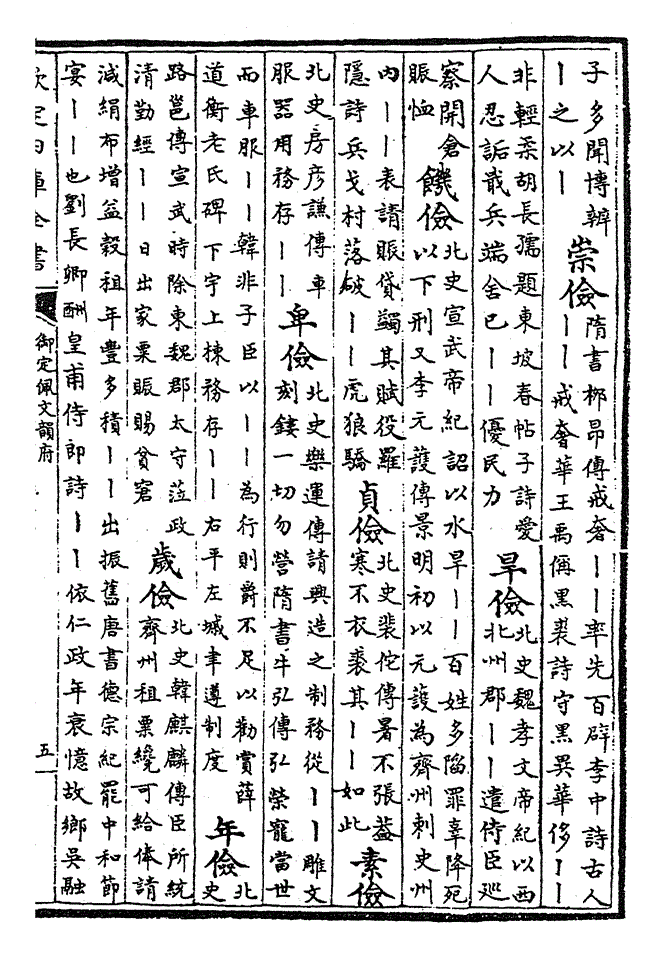 子多聞博辧
丨之以丨
崇儉
隋書栁昂傳戒奢丨丨率先百辟李中詩古人
丨丨戒奢華王禹偁黒裘詩守黒異華侈丨丨
非輕柔胡長孺題東坡春帖子詩愛
人忍詬戢兵端舍已丨丨優民力
旱儉
北史魏孝文帝紀以西
北州郡丨丨遣侍臣廵
察開倉
賑恤
饑儉
北史宣武帝紀詔以水旱丨丨百姓多陷罪辜降死
以下刑又李元護傳景明初以元護為齊州刺史州
内丨丨表請賑貸蠲其賦役羅
隱詩兵戈村落破丨丨虎狼驕
貞儉
北史裴佗傳暑不張葢
寒不衣裘其丨丨如此
素儉
北史房彦謙傳車
服器用務存丨丨
卑儉
北史樂運傳請興造之制務從丨丨雕文
刻鏤一切勿營隋書牛弘傳弘榮寵當世
而車服丨丨韓非子臣以丨丨為行則爵不足以勸賞薛
道衡老氏碑下宇上棟務存丨丨右平左墄聿遵制度
年儉
北
史
路邕傳宣武時除東魏郡太守涖政
清勤經丨丨日出家粟賑賜貧窘
歲儉
北史韓麒麟傳臣所統
齊州租粟纔可給俸請
減絹布增益穀租年豐多積丨丨出振舊唐書德宗紀罷中和節
宴丨丨也劉長卿酬皇甫侍郎詩丨丨依仁政年衰憶故鄉吳融
欽定四庫全書
御定佩文韻府
五